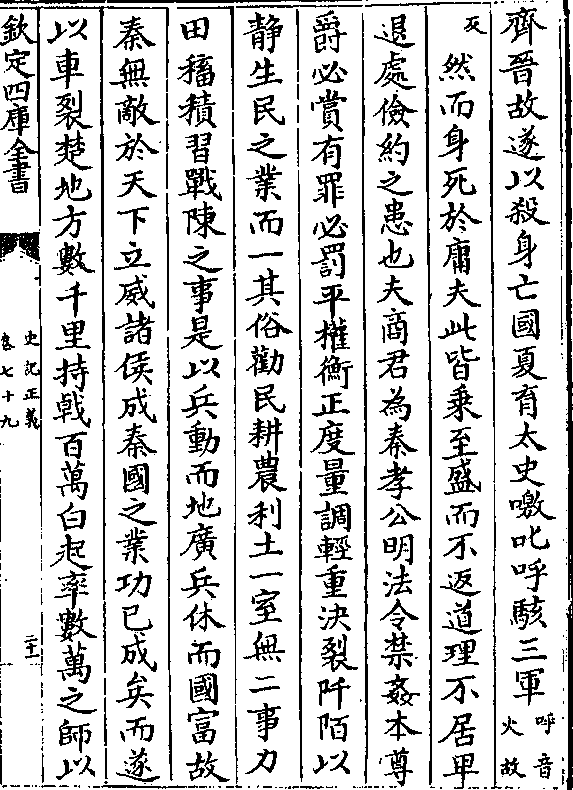 齊晉故遂以殺身亡國夏育太史噭叱呼駭三軍呼音火故
反然而身死於庸夫此皆乗至盛而不返道理不居卑
退處儉約之患也夫商君為秦孝公明法令禁姦本尊
爵必賞有罪必罰平權衡正度量調輕重決裂阡陌以
静生民之業而一其俗勸民耕農利土一室無二事力
田稸積習戰陳之事是以兵動而地廣兵休而國富故
秦無敵於天下立威諸侯成秦國之業功已成矣而遂
以車裂楚地方數千里持戟百萬白起率數萬之師以
欽定四庫全書
史記正義
卷七十九
二十一